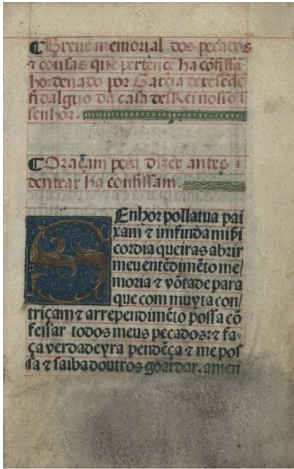 Breue memorial dos pecados
⁊ cousas que pertẽce ha cõfissã
hordenado por Garcia de resẽde
fidalguo da casa delRei nosso
senhor.
Oraçam pera dizer antes
dentrar ha confissam.
Senhor polla tua pai
xam ⁊ infinda miſi
cordia queiras abrir
meu entẽdimẽto me/
moria ⁊ võtade para
que com muyta con/
triçam ⁊ arrependimẽto possa cõ
feſſar todos meus pecados: ⁊ fa/
ça verdadeyra pendẽça ⁊ me pos
sa ⁊ saiba doutros goardar. amen